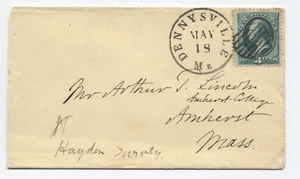 DENNYSVILLE
MAY
18
Me
Mr Arthur T. Lincoln
Amherst College
Amherst
Mass.
Hayden Survey